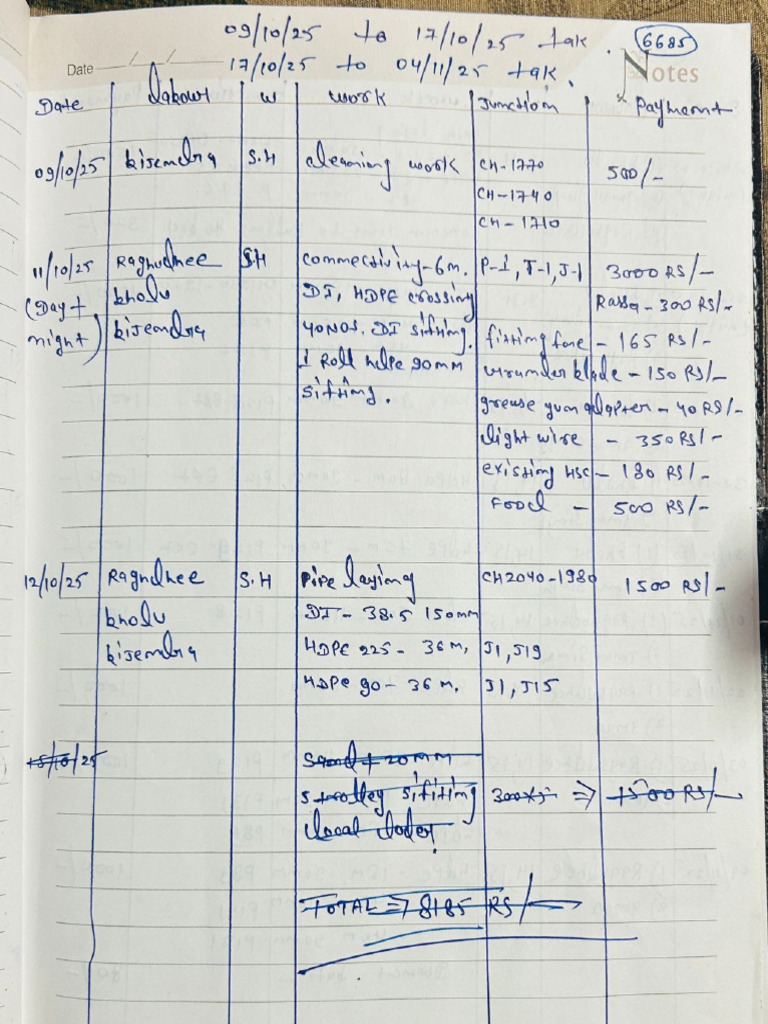 09/10/25 to 17/10/25 tak.
6685
Date
17/10/25 to 04/11/25 tak.
Notes
Date labour w work Junction x Payment
09/10/25 kisendra S.H cleaning work CH-1770 500/-
CH-1740
CH-1710
11/10/25 Raghudhee S.H connectivity-6m. P-1, J-1, J-1 3000 RS/-
(Day+ kholu DI, HDPE crossing Rassa-300 RS/-
night) kisendra 40 NOS. DI sifting. fitting fane - 165 RS/-
1 Roll hdpe 90mm blade - 150 RS/-
sifting. grease gun adapter - 40 RS/-
light wire - 350 RS/-
existing HSC - 180 RS/-
FOOD - 500 RS/-
12/10/25 Raghudhee S.H Pipe laying CH2040-1980 1500 RS/-
kholu DI- 38.5 150mm
kisendra HDPE 225- 36 m. J1, J19
HDPE 90- 36 m. J1, J15
15/10/25 Sand + 20mm
5 trolley sifiting 300x5 => 1500 RS/-
local loder.
TOTAL => 8185 RS/-